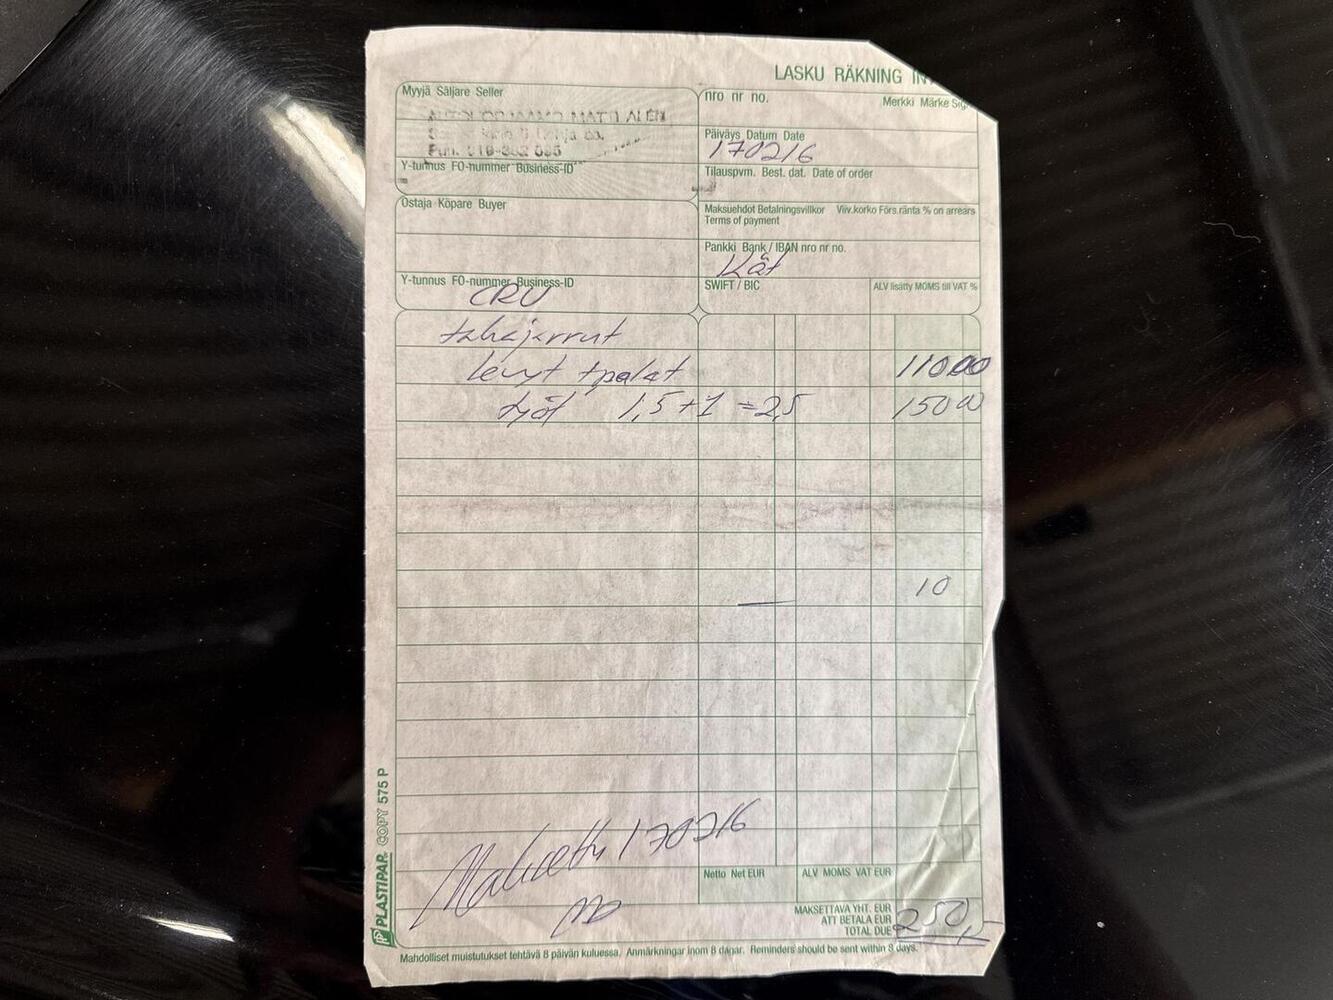 LASKU RÄKNING
Myyjä Säljare Seller
nro nr no.
Merkki Märke
MATTI ALÉN
Päiväys Datum Date
170216
Y-tunnus FO-nummer Business-ID
Tilauspvm. Best. dat. Date of order
Ostaja Köpare Buyer
Maksuehdot Betalningsvillkor Viiv.korko Förs.ränta % on arrears
Terms of payment
Pankki Bank / IBAN nro nr no.
Kät
Y-tunnus FO-nummer Business-ID
CRV
SWIFT / BIC
ALV lisätty MOMS till VAT %
takajarrut
levyt + palat 110 00
työt 1,5 + 1 = 2,5 150 00
10
Maksettu 170216
MA
Netto Net EUR
ALV MOMS VAT EUR
MAKSETTAVA YHT. EUR
ATT BETALA EUR
TOTAL DUE
250,-
Mahdolliset muistutukset tehtävä 8 päivän kuluessa. Anmärkningar inom 8 dagar. Reminders should be sent within 8 days.
PLASTIPAR COPY 575 P